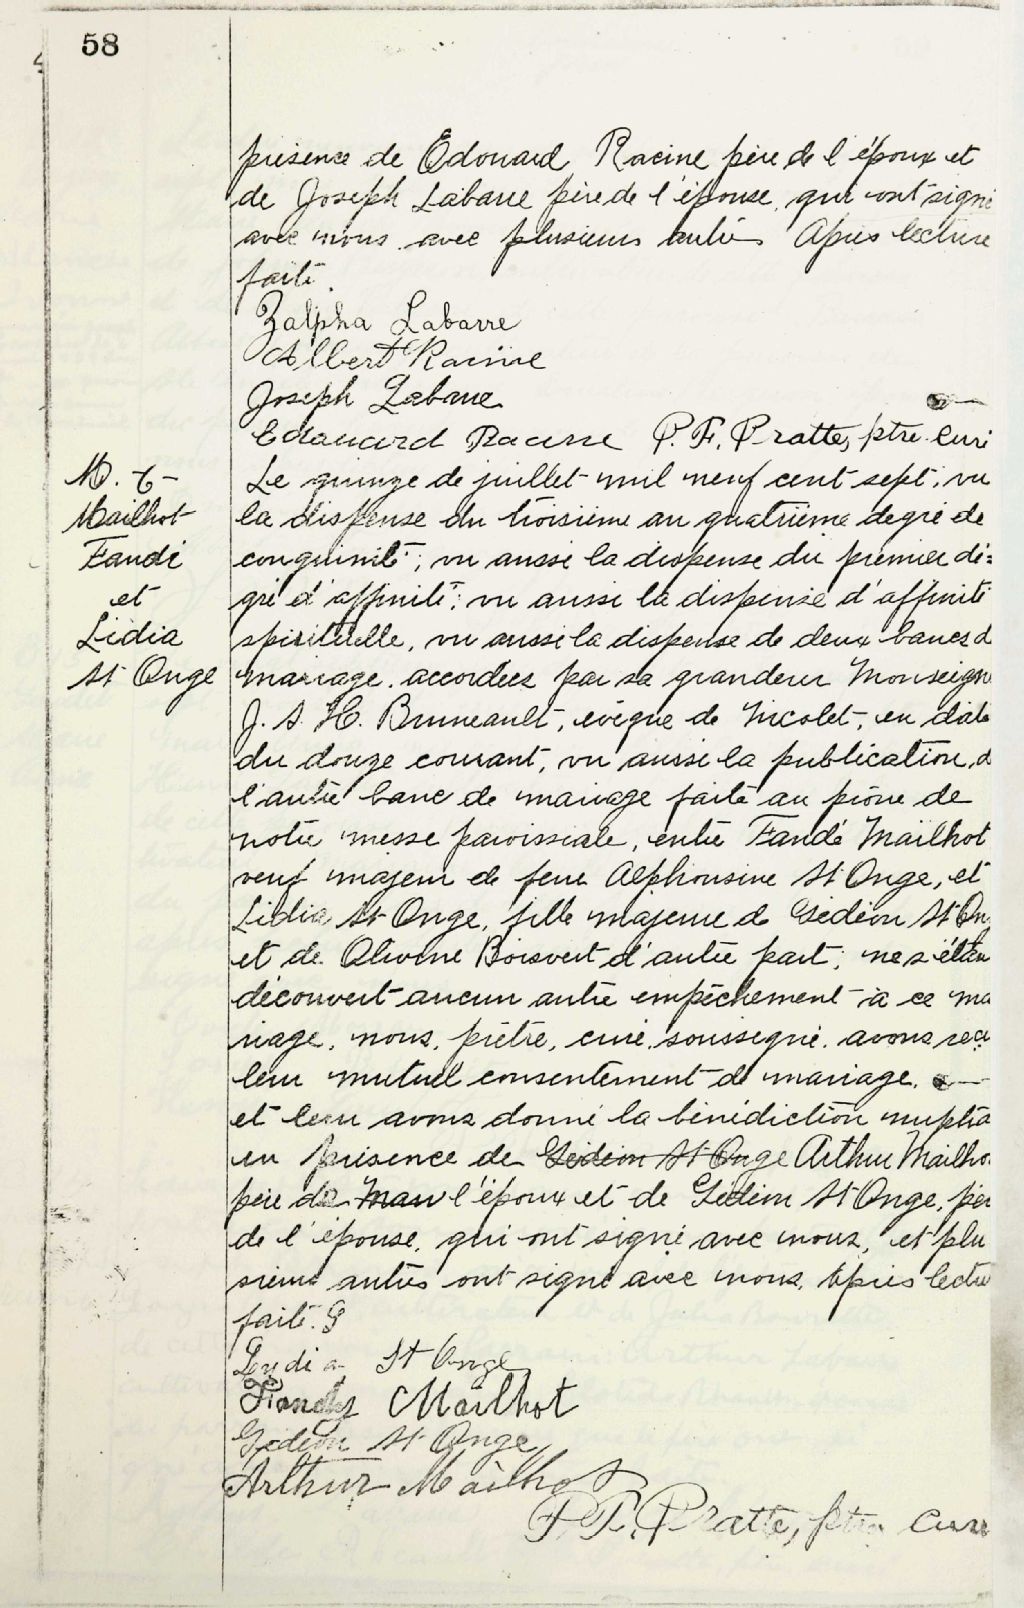 58
présence de Edouard Racine père de l'époux et
de Joseph Labarre père de l'épouse, qui ont signé
avec nous avec plusieurs autres Après lecture
faite.
Zalpha Labarre
Albert Racine
Joseph Labarre
Edouard Racine P. F. Pratte, ptre. curé
M. 7-
Mailhot
Fandé
et
Lidia
St Onge
Le quinze de juillet mil neuf cent sept, vu
la dispense du troisième au quatrième degré de
conguinité; vu aussi la dispense du premier dé=
gré d'affinité; vu aussi la dispense d'affinité
spirituelle, vu aussi la dispense de deux bancs d
mariage accordées par sa grandeur Monseign
J. S. H. Bruneault, évêque de Nicolet, en date
du douze courant, vu aussi la publication d
l'autre banc de mariage faite au prône de
notre messe paroissiale, entre Fandé Mailhot
veuf majeur de feue Alphonsine St Onge, et
Lidia St Onge, fille majeure de Gédéon St On
et de Olivine Boisvert d'autre part; ne s'étan
découvert aucun autre empêchement à ce ma
riage, nous, prêtre, curé, soussigné, avons reçu
leur mutuel consentement de mariage.
et leur avons donné la bénédiction nuptia
en présence de Gédéon St Onge Arthur Mailho
père de Man l'époux et de Gédéon St Onge, pèr
de l'épouse, qui ont signé avec nous, et plu
sieurs autres ont signé avec nous, Après lectu
faite. G
Lydia St Onge
Fandy Mailhot
Gédéon St Onge
Arthur Mailhot
P. F. Pratte, ptre. curé